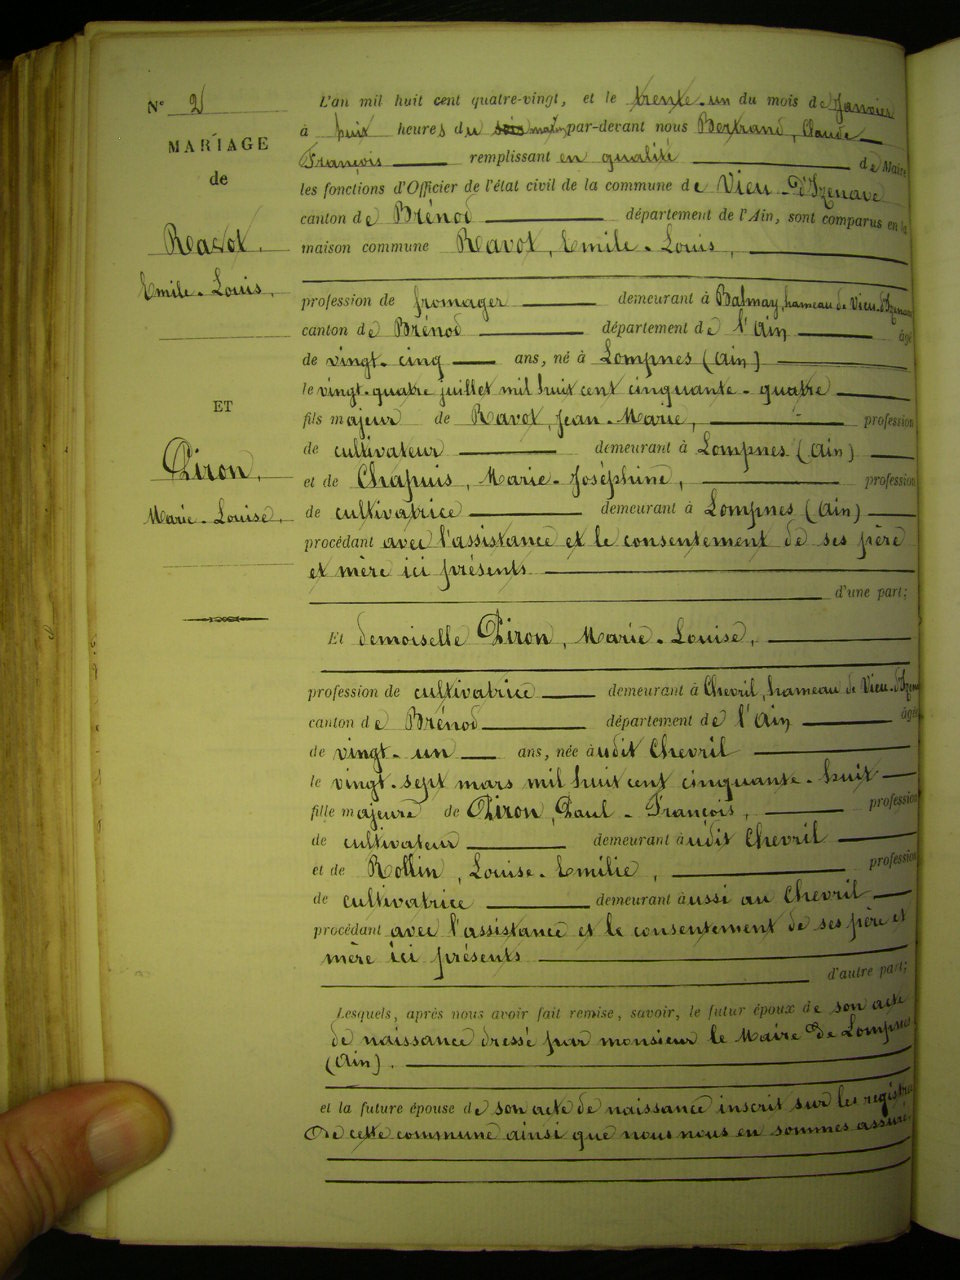 N° 2
MARIAGE
de
Ravot,
Emile-Louis,
ET
Piron,
Marie-Louise,
L'an mil huit cent quatre-vingt, et le trente-un du mois de Janvier
à huit heures du matin par-devant nous Bertrand, Claude
François remplissant en qualité de Maire
les fonctions d'Officier de l'état civil de la commune de Vieu-d'Izenave
canton de Brénod département de l'Ain, sont comparus en la
maison commune Ravot, Emile-Louis,
profession de fromager demeurant à Balmay, hameau de Vieu-d'Izenave
canton de Brénod département de l'Ain âgé
de vingt-cinq ans, né à Lompnes (Ain)
le vingt-quatre juillet mil huit cent cinquante-quatre
fils majeur de Ravot, Jean-Marie, profession
de cultivateur demeurant à Lompnes (Ain)
et de Chapuis, Marie-Joséphine, profession
de cultivatrice demeurant à Lompnes (Ain)
procédant avec l'assistance et le consentement de ses père
et mère ici présents
d'une part;
Et demoiselle Piron, Marie-Louise,
profession de cultivatrice demeurant à Chevril, hameau de Vieu-d'Izenave
canton de Brénod département de l'Ain âgée
de vingt-un ans, née audit Chevril
le vingt-sept mars mil huit cent cinquante-huit
fille majeure de Piron, Paul-François, profession
de cultivateur demeurant audit Chevril
et de Rollin, Louise-Emilie, profession
de cultivatrice demeurant aussi au Chevril
procédant avec l'assistance et le consentement de ses père et
mère ici présents
d'autre part;
Lesquels, après nous avoir fait remise, savoir, le futur époux de son acte
de naissance dressé par monsieur le Maire de Lompnes
(Ain).
et la future épouse de son acte de naissance inscrit sur les registres
de cette commune ainsi que nous nous en sommes assuré.